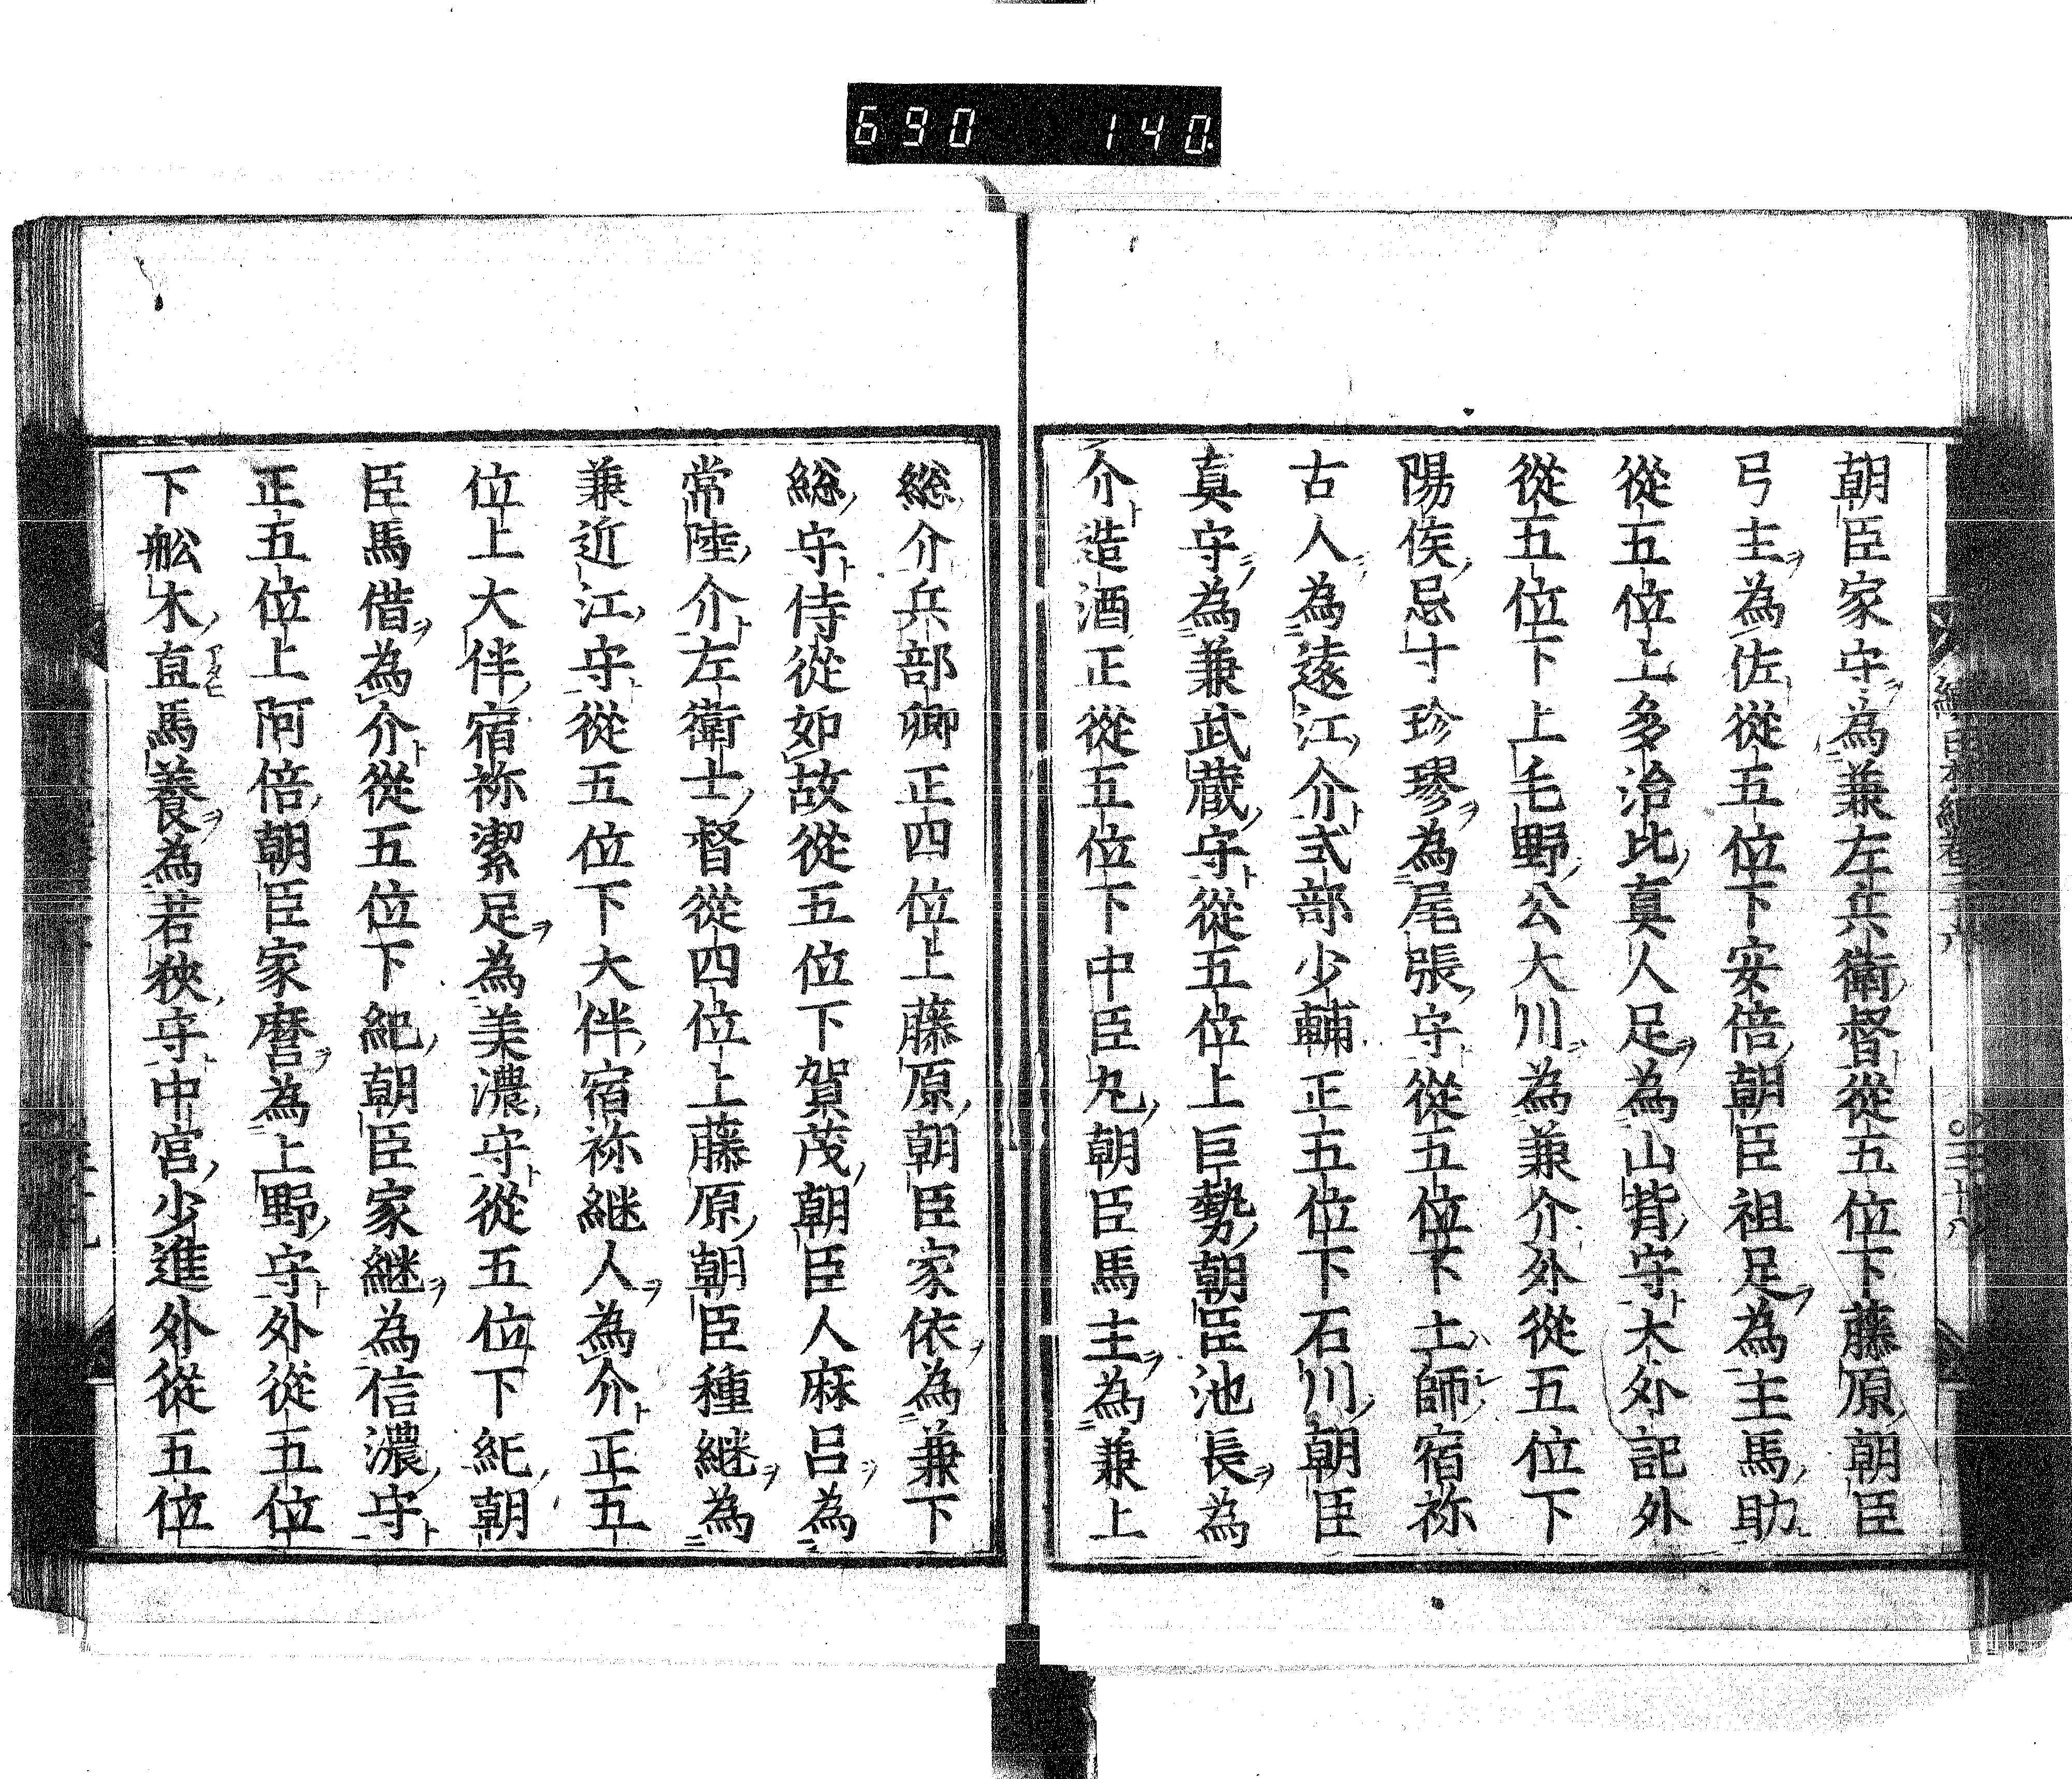 690 140
朝臣家守為兼左兵衛督從五位下藤原朝臣
弓主為佐從五位下安倍朝臣祖足為主馬助
從五位上多治比真人足為山背守大外記外
從五位下上毛野公大川為兼介外從五位下
陽侯忌寸珍璆為尾張守從五位下土師宿祢
古人為遠江介式部少輔正五位下石川朝臣
真守為兼武蔵守從五位上巨勢朝臣池長為
介造酒正從五位下中臣丸朝臣馬主為兼上
総介兵部卿正四位上藤原朝臣家依為兼下
総守侍從如故從五位下賀茂朝臣人麻呂為
常陸介左衛士督從四位上藤原朝臣種継為
兼近江守從五位下大伴宿祢継人為介正五
位上大伴宿祢潔足為美濃守從五位下紀朝
臣馬借為介從五位下紀朝臣家継為信濃守
正五位上阿倍朝臣家麿為上野守外從五位
下舩木直馬養為若狹守中宮少進外從五位